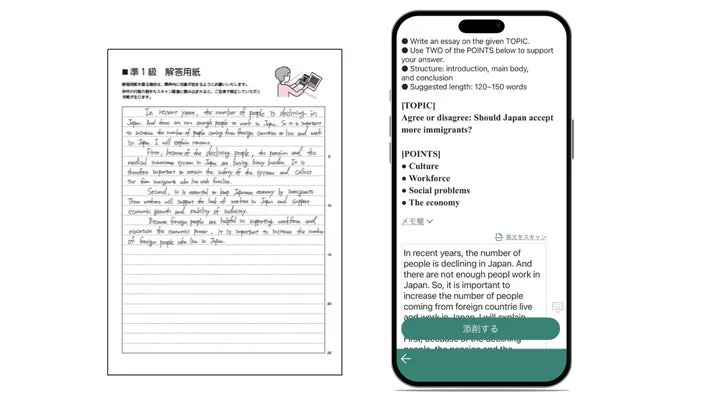 ■準1級 解答用紙
In recent years, the number of people is declining in
Japan. And there are not enough people to work in Japan. So it is important
to increase the number of people coming from foreign countries to live and work
in Japan. I will explain reasons.
First, because of the declining people, the pension and the
medical insurance system in Japan are having heavy burden. It is
therefore important to sustain the safety of the system and collect
tax from immigrants who
Second, it is essential to keep Japanese economy by immigrants
workers will support the lack of workers in Japan and support
economic growth and stability of industry.
Because foreign people are helpful in supporting workforce and
maintain the economic power, it is important to increase the number
of foreign people who live in Japan.
5
10
15
20
● Write an essay on the given TOPIC.
● Use TWO of the POINTS below to support
your answer.
● Structure: introduction, main body,
and conclusion
● Suggested length: 120~150 words
[TOPIC]
Agree or disagree: Should Japan accept
more immigrants?
[POINTS]
● Culture
● Workforce
● Social problems
● The economy
メモ欄
英文をスキャン
In recent years, the number of
people is declining in Japan. And
there are not enough peopl work in
Japan. So, it is important to
increase the number of people
coming from foreign countrie live
and work in Japan. I will explain
添削する
First, because of the declining
people, the pension and the